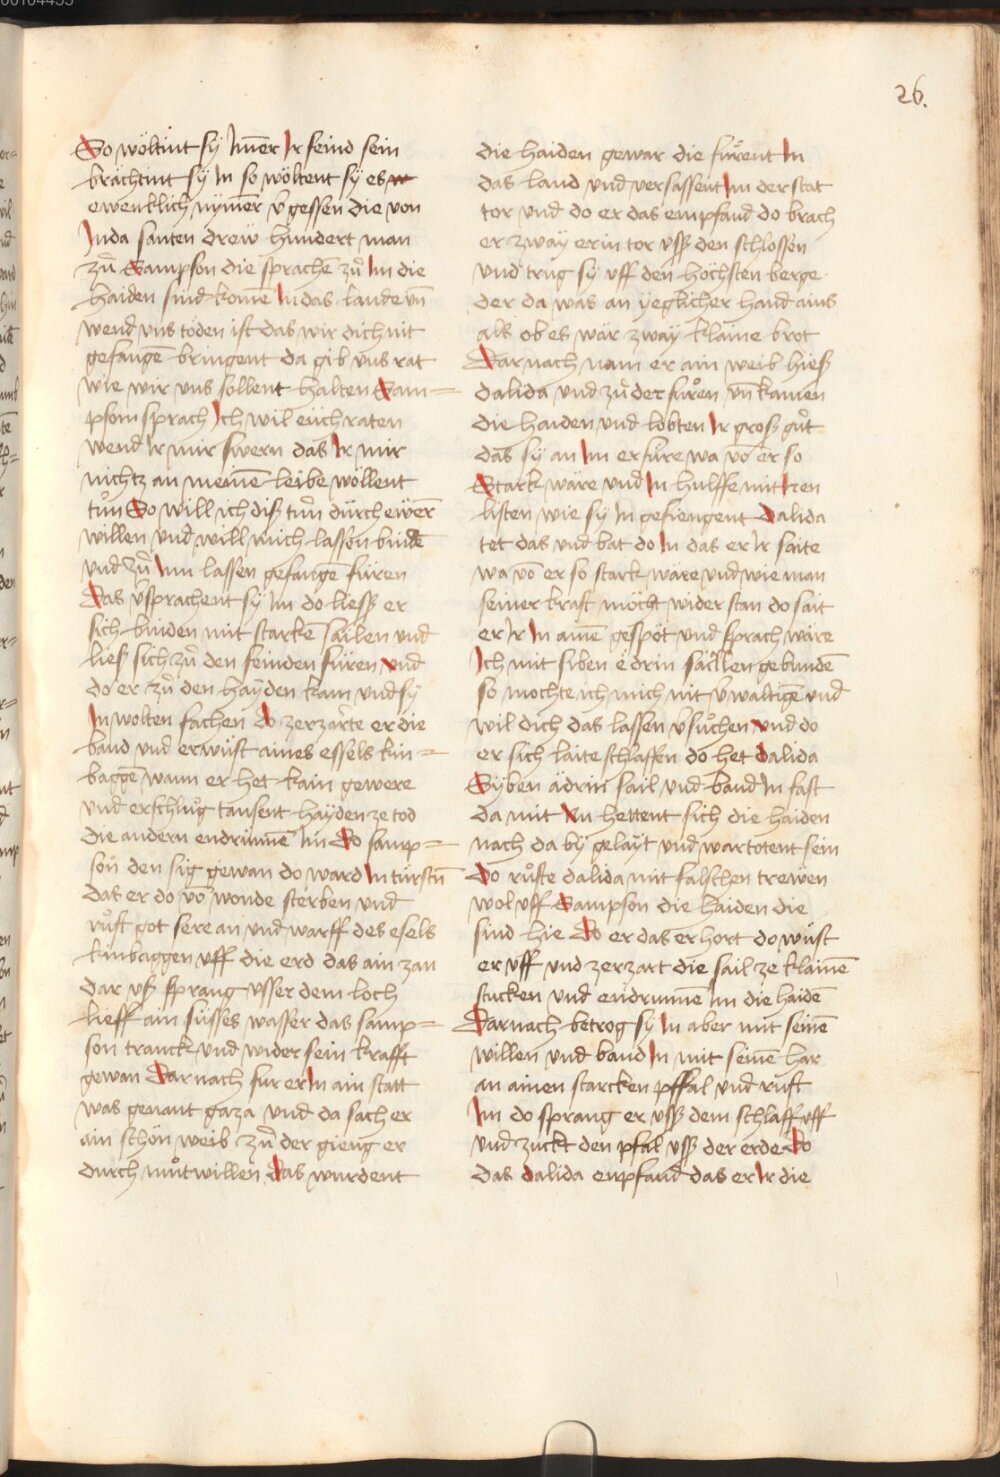 26.
So wöltint sÿ Im̄er Ir feind sein
brächtint sÿ In so wöltent sÿ es
ewenklich nÿmer v̄gessen die von
Juda santen drew hundert man
zů Sampson die sprachē zů Im die
haiden sind komē In das lande vn̄
wend vns töden ist das wir dich nit
gefangē bringent da gib vns rat
wie wir vns sollent halten Sam=
psom sprach Ich wil eüch raten
wend Ir mir swern das Ir mir
nichtz an meinē leibe wöllent
tůn So will ich diß tůn dürch ewer̄
willen vnd will mich lassen bindē
vnd zů Inn lassen gefangē füren
Das v̄sprachent sÿ Im do liess er
sich binden mit starkē sailen vnd
lies sich zů den feinden füren vnd
do er zů den haÿden kam vnd sÿ
In wolten fachen do zerzarte er die
band vnd erwüst aines essels kin=
baggē wann er het kain gewere
vnd erschlůg tausent haÿden ze tod
die andern endrunnē Im Do samp=
son den sig gewan do ward In türstn̄
das er do vō wonde sterben vnd
růft got sere an vnd warff des esels
kinbaggen vff die erd das ain zan
dar vß sprang vsser dem loch
lieff ain süsses wasser das samp=
son tranck vnd wider sein krafft
gewan Dar nach fur er In ain statt
was genant gaza vnd da sach er
ain schön weib zů der gieng er
durch můtwillen das wurdent
die haiden gewar die fůrent In
das land vnd versassent Im der stat
tor vnd do er das empfand do brach
er zwaÿ erin tor vss den schlossen
vnd trug sÿ vff den höchsten berge
der da was an ÿeglicher hand ains
als ob es wär zwaÿ klaine brot
Dar nach nam er ain weib hiess
dalida vnd zů der fůren vn̄ kamen
die haiden vnd lobten Ir gross gůt
das sÿ an Im erfüre wa vō er so
Stark wäre vnd In hulffe mit Iren
listen wie sÿ In gefiengent Dalida
tet das vnd bat do In das er Ir saite
wa vō er so stark wäre vnd wie man
seiner kraft möcht wider stan do sait
er Ir In ainē gespöt vnd sprach wäre
Ich mit siben ëdrin saillen gebundē
so mochte ich mich nit v̄waltigē vnd
wil dich das lassen v̄sůchen vnd do
er sich laite schlaffen do het dalida
Sÿben ädrin sail vnd band In fast
da mit Vn hettent sich die haiden
nach da bÿ gelaÿt vnd wartotent sein
Do růfte dalida mit falschen trewen
wol vff Sampson die haiden die
sind hie Do er das erhort do wüst
er vff vnd zerzart die sail ze klainē
stucken vnd endrunnē Im die haidē
Darnach betrog sÿ In aber mit seinē
willen vnd band In mit seinē har
an ainen starcken pffal vnd růft
Im do sprang er vss dem schlaff vff
vnd zuckt den pfal vss der erde do
das dalida enpfand das er Ir die